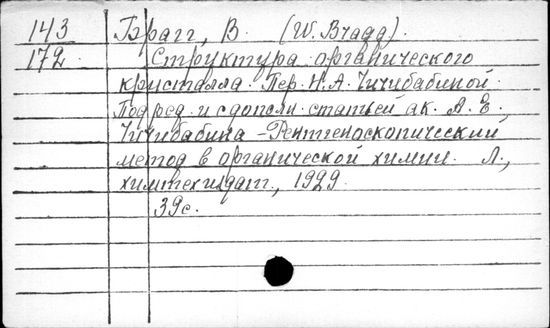 143 Брагг, В. (W. Bragg).
172 Структура органического
кристалла. Пер. Н.А. Чичибабиной.
Под ред. и с дополн. статьей ак. А.Е.
Чичибабина - Рентгеноскопический
метод в органической химии. Л.,
химтехиздат, 1929.
39с.